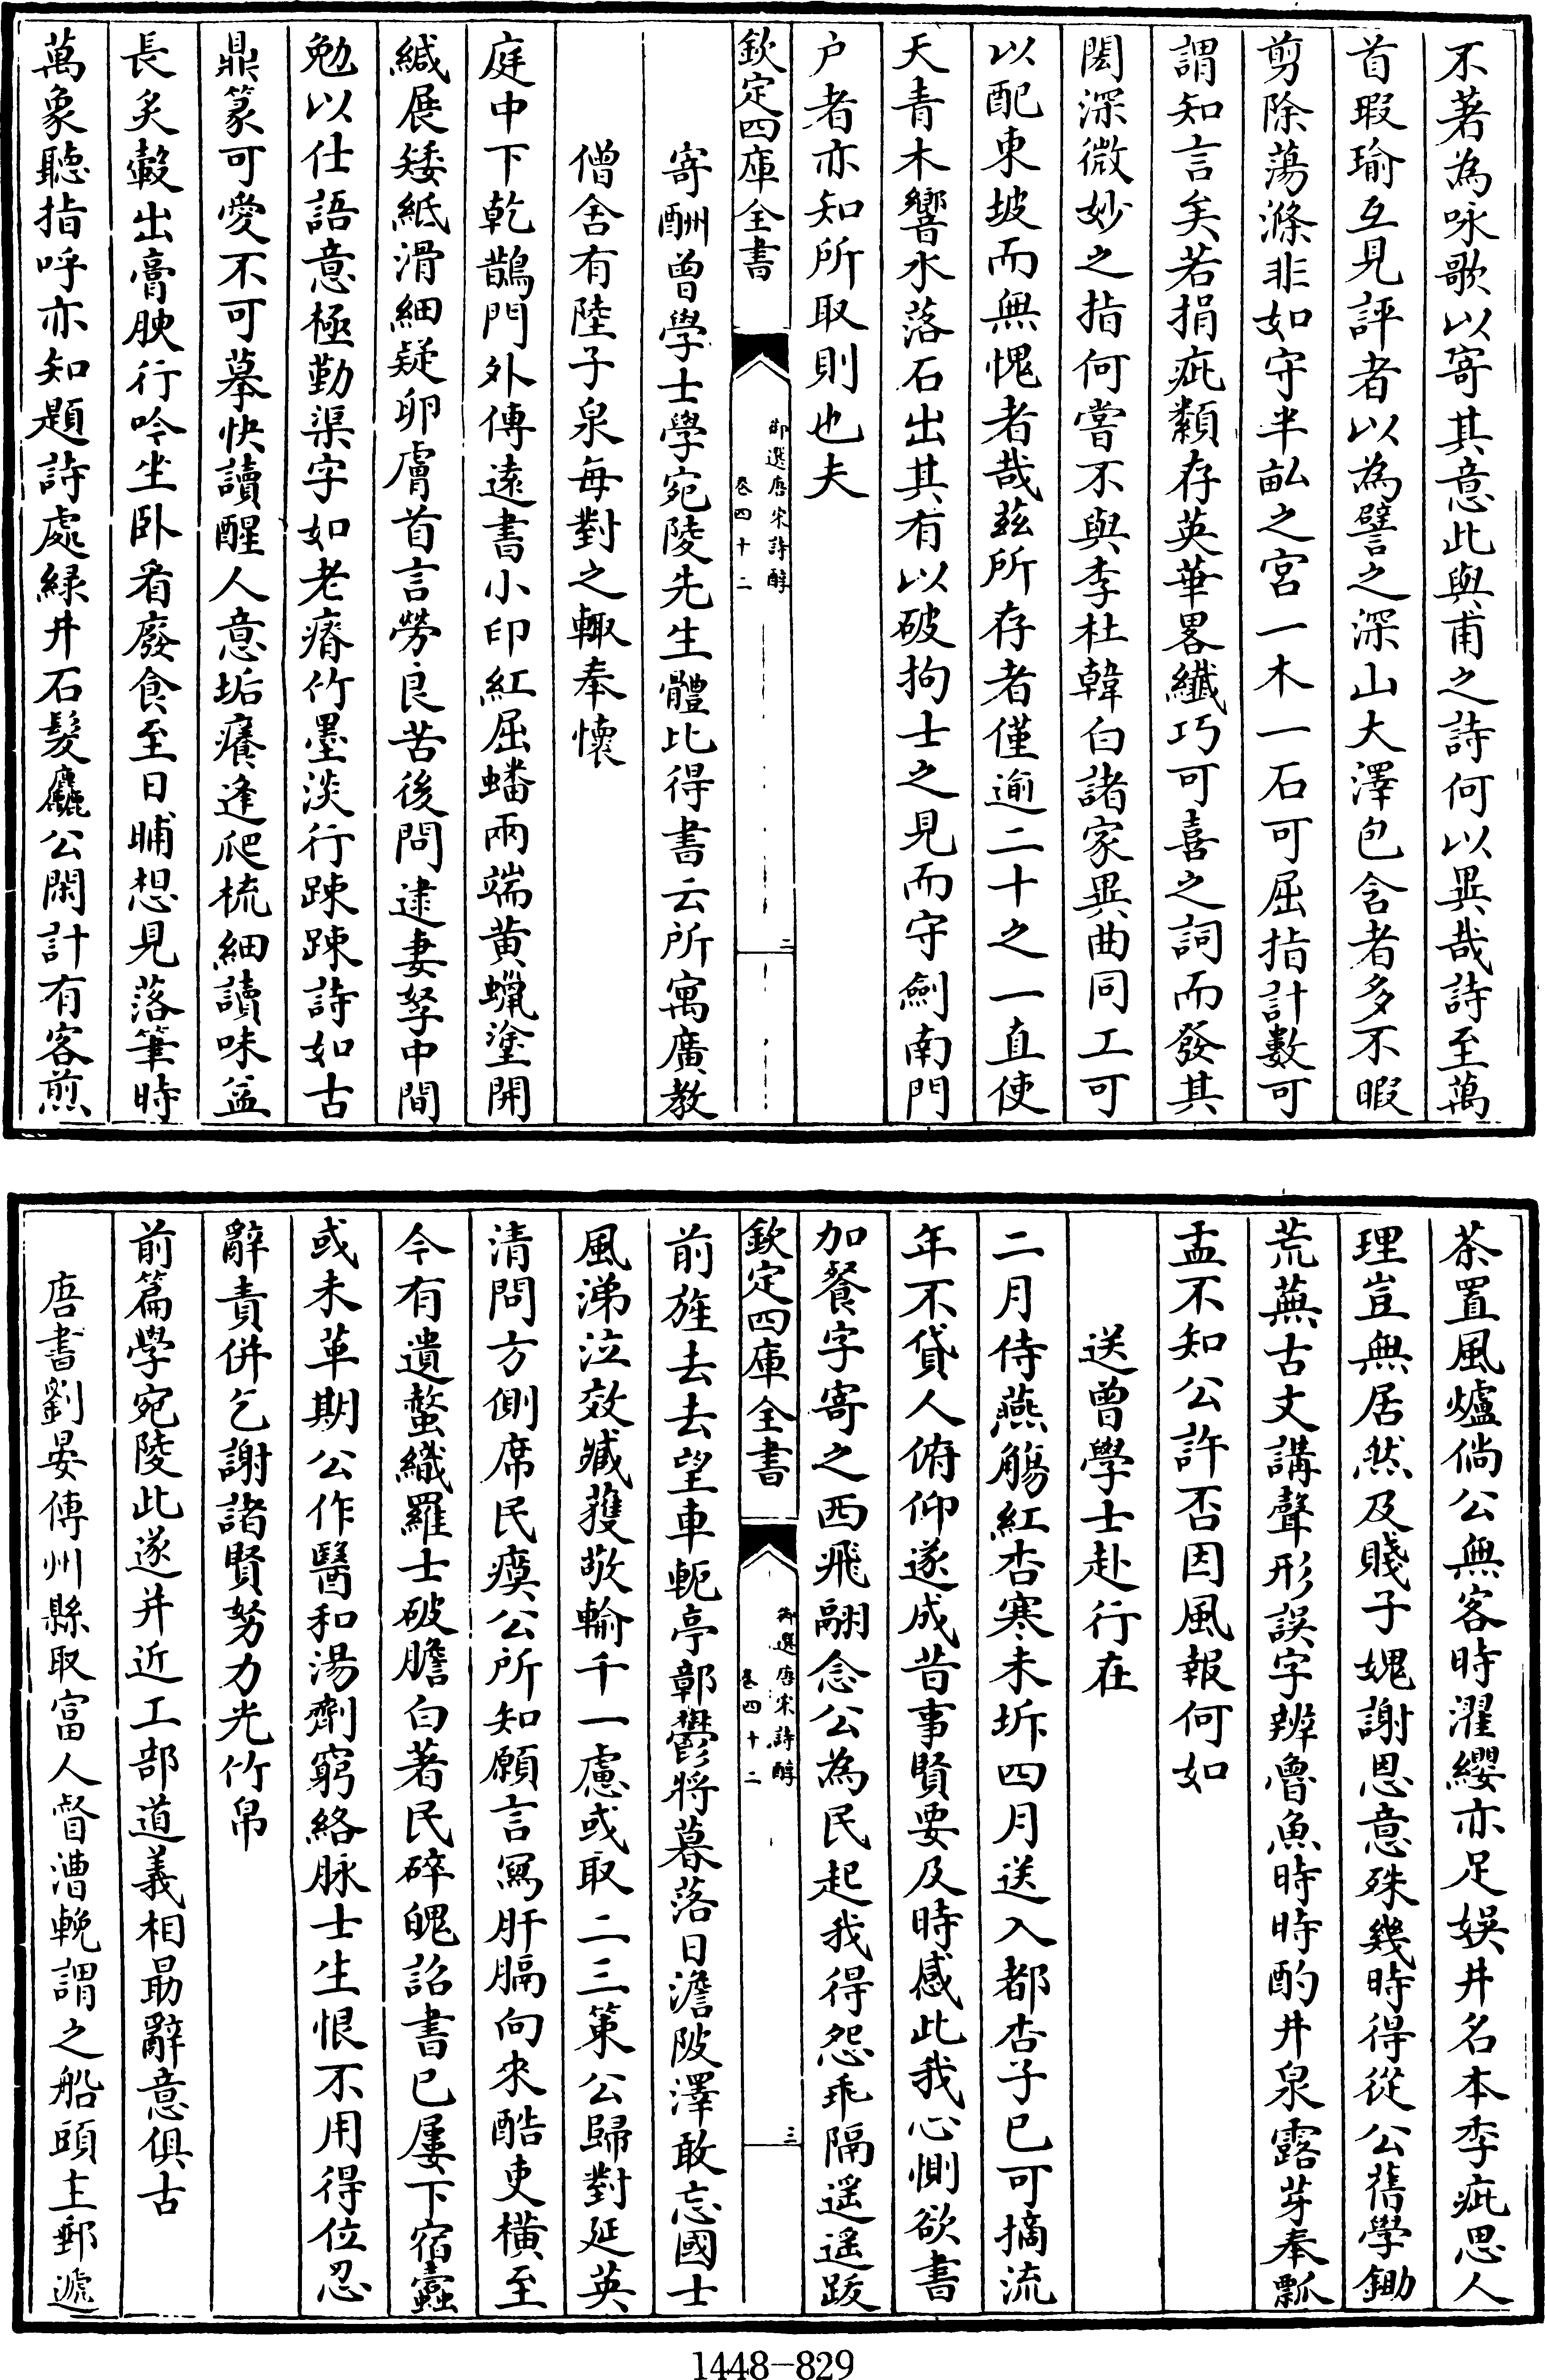 不著為咏歌以寄其意此與甫之詩何以異哉詩至萬
首瑕瑜互見評者以為譬之深山大澤包含者多不暇
剪除蕩滌非如守半畝之宮一木一石可屈指計數可
謂知言矣若捐疵纇存英華畧纖巧可喜之詞而發其
閎深微妙之指何嘗不與李杜韓白諸家異曲同工可
以配東坡而無愧者哉兹所存者僅逾二十之一直使
天青木響水落石出其有以破拘士之見而守劍南門
户者亦知所取則也夫
欽定四庫全書
御選唐宋詩醇
卷四十二
二
寄酬曾學士學宛陵先生體比得書云所寓廣教
僧舍有陸子泉每對之輙奉懷
庭中下乾鵲門外傳遠書小印紅屈蟠兩端黄蠟塗開
緘展矮紙滑細疑卵膚首言勞良苦後問逮妻孥中間
勉以仕語意極勤渠字如老瘠竹墨淡行踈踈詩如古
鼎篆可愛不可摹快讀醒人意垢癢逢爬梳細讀味益
長炙轂出膏腴行吟坐卧看廢食至日晡想見落筆時
萬象聽指呼亦知題詩處緑井石髮麤公閑計有客煎
茶置風爐倘公無客時濯纓亦足娱井名本季疵思人
理豈無居然及賤子媿謝恩意殊幾時得從公舊學鋤
荒蕪古文講聲形誤字辨魯魚時時酌井泉露芽奉瓢
盂不知公許否因風報何如
送曾學士赴行在
二月侍燕觴紅杏寒未坼四月送入都杏子已可摘流
年不貸人俯仰遂成昔事賢要及時感此我心惻欲書
加餐字寄之西飛翮念公為民起我得怨乖隔遥遥跋
欽定四庫全書
御選唐宋詩醇
卷四十二
三
前旌去去望車軛亭鄣鬱將暮落日澹陂澤敢忘國士
風涕泣效臧獲敬輸千一慮或取二三策公歸對延英
清問方側席民瘼公所知願言寫肝膈向來酷吏横至
今有遺螫織羅士破膽白著民碎魄詔書已屢下宿蠹
或未革期公作醫和湯劑窮絡脉士生恨不用得位忍
辭責併乞謝諸賢努力光竹帛
前篇學宛陵此遂并近工部道義相勗辭意俱古
唐書劉晏傳州縣取富人督漕輓謂之船頭主郵遞
1448-829